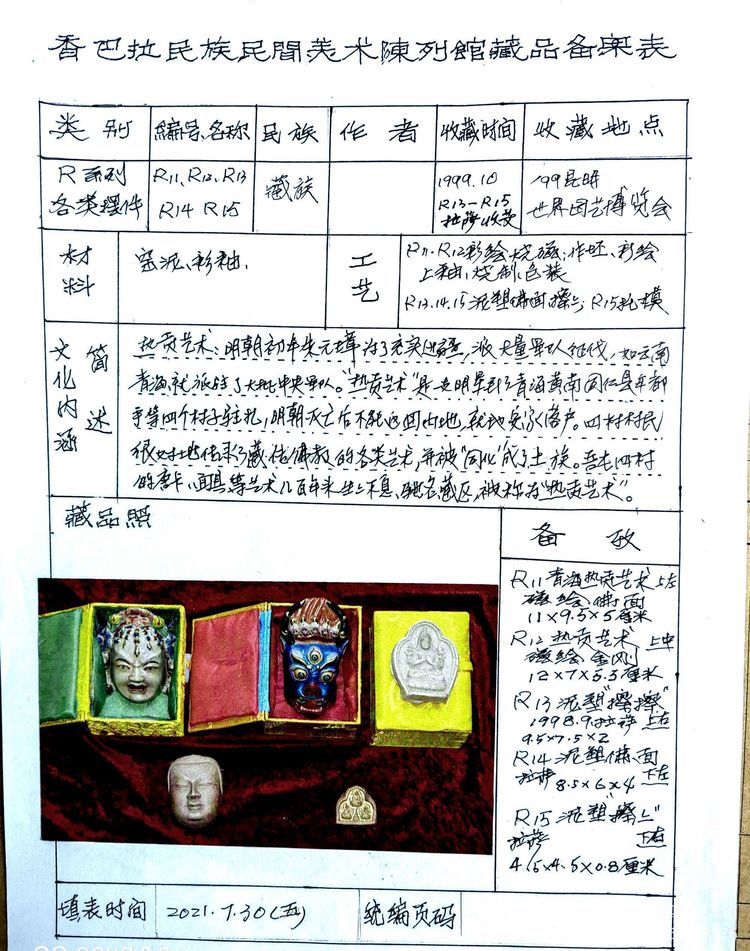 香巴拉民族民間美术陳列館藏品备案表
类别 編号、名称 民族 作者 收藏时间 收藏地点
R系列
各类摆件
R11、R12、R13
R14 R15
藏族
1999.10
R13-R15
拉萨收受
99昆明
世界园艺博览会
材料
窑泥、彩釉、
工艺
R11.R12彩绘烧磁:作坯、彩绘
上釉,烧制,包装
R13.14.15泥塑佛面擦擦;R15托模
文化内涵
简述
热贡艺术:明朝初年朱元璋为了充实边疆,派大量军队征伐,如云南
青海就派驻了大批中央军队。"热贡艺术"是 明军 青海黄南同仁县年都
乎等四个村子驻扎,明朝灭亡后不能返回内地,就地安家落户。四村村民
很好地传承了藏传佛教的各类艺术,并被"同化"成了土族。吾屯四村
的唐卡、面具等艺术几百年来生生不息、驰名藏区,被称为"热贡艺术"。
藏品照
备攷
R11 青海热贡艺术 上左
磁绘佛面
11×9.5×5厘米
R12 热贡艺术 上中
磁绘金刚
12×7×5.3厘米
R13 泥塑"擦擦"
1998.9.拉萨 上右
9.5×7.5×2
R14 泥塑佛面
拉萨 8.5×6×4 下左
R15 泥塑"擦擦"
拉萨 下右
4.5×4.5×0.8厘米
填表时间 2021.7.30(五) 统编页码